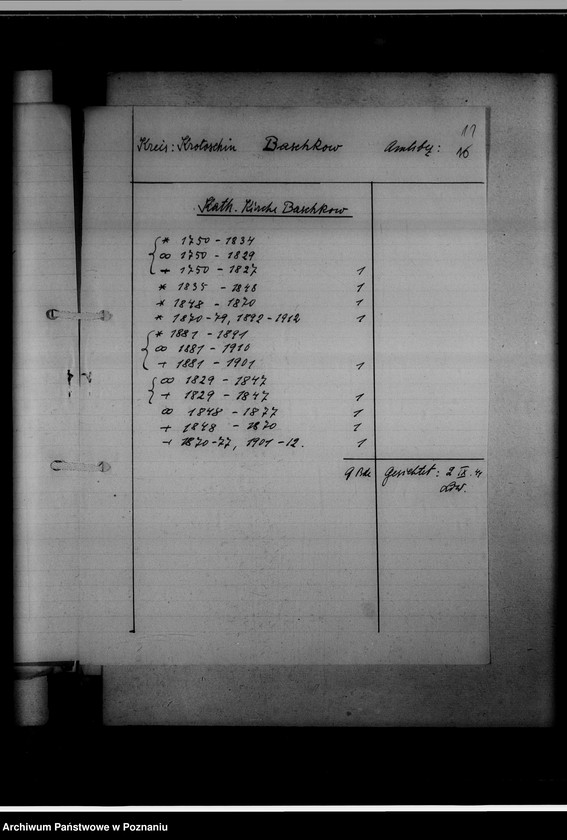 17
Kreis: Krotoschin Baschkow Amtsbez: 16
Kath. Kirche Baschkow
* 1750 - 1834
∞ 1750 - 1829
+ 1750 - 1827 1
* 1835 - 1848 1
* 1848 - 1870 1
* 1870-79, 1892-1912 1
* 1881 - 1891
∞ 1881 - 1910
+ 1881 - 1901 1
∞ 1829 - 1847
+ 1829 - 1847 1
∞ 1848 - 1877 1
+ 1848 - 1870 1
+ 1870-77, 1901-12. 1
9 Bde Gesichtet: 2 IX. 41
Archiwum Państwowe w Poznaniu